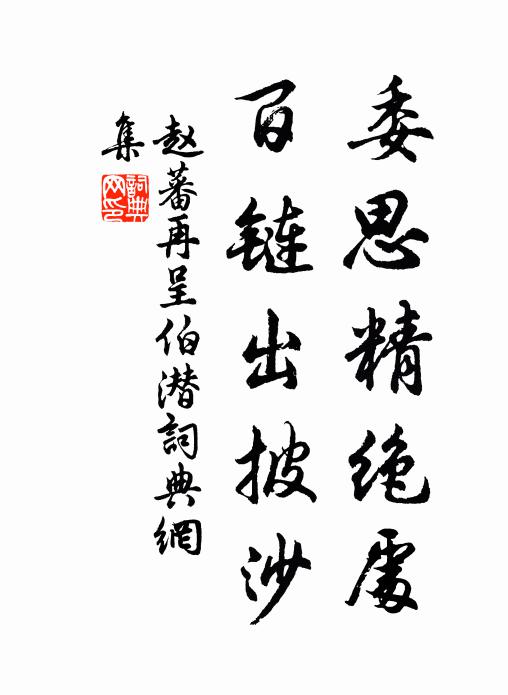 委思精绝處
百鏈出披沙
赵蕃再呈伯潜詞典網
集
詞典
网印